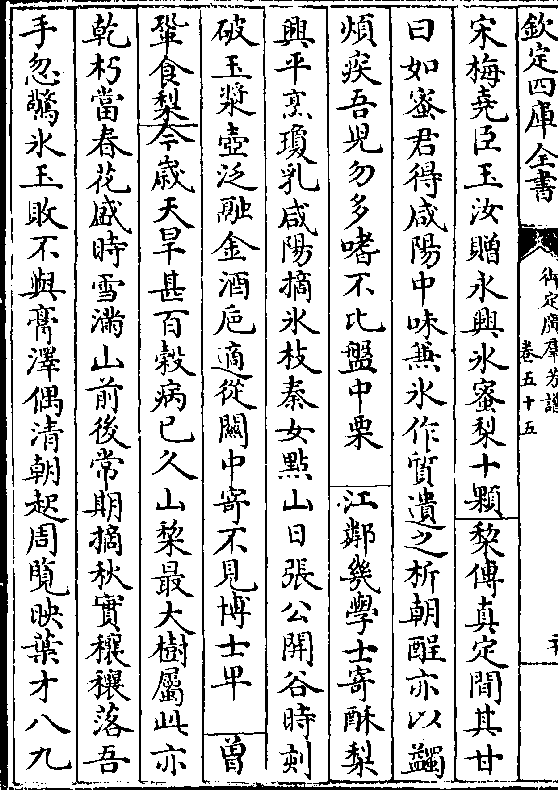 欽定四庫全書
御定廣羣芳譜
卷五十五
宋梅堯臣玉汝贈永興氷蜜梨十顆棃傳真定間其甘
曰如蜜君得咸陽中味兼氷作質遺之析朝酲亦以蠲
煩疾吾兒勿多嗜不比盤中栗　江鄰幾學士寄酥梨
興平烹瓊乳咸陽摘氷枝秦女點山日張公開谷時刻
破玉漿壺泛融金酒巵適從闗中寄不見博士卑　曾
鞏食梨今歲天旱甚百榖病已久山棃最大樹屬此亦
乾朽當春花盛時雪滿山前後常期摘秋實穰穰落吾
手忽驚氷玉敗不與膏澤偶清朝起周覧映葉才八九